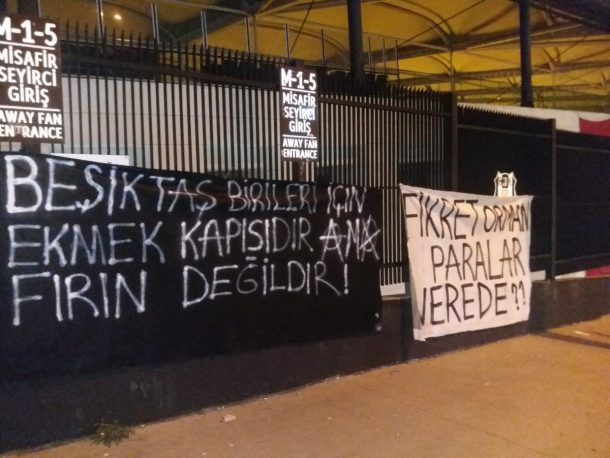 M-1-5
MİSAFİR
SEYİRCİ
GİRİŞ
AWAY FAN
ENTRANCE
M-1-5
MİSAFİR
SEYİRCİ
GİRİŞ
AWAY FAN
ENTRANCE
BEŞİKTAŞ BİRİLERİ İÇİN
EKMEK KAPISIDIR AMA
FIRIN DEĞİLDİR!
FİKRET ORMAN
PARALAR
NEREDE??